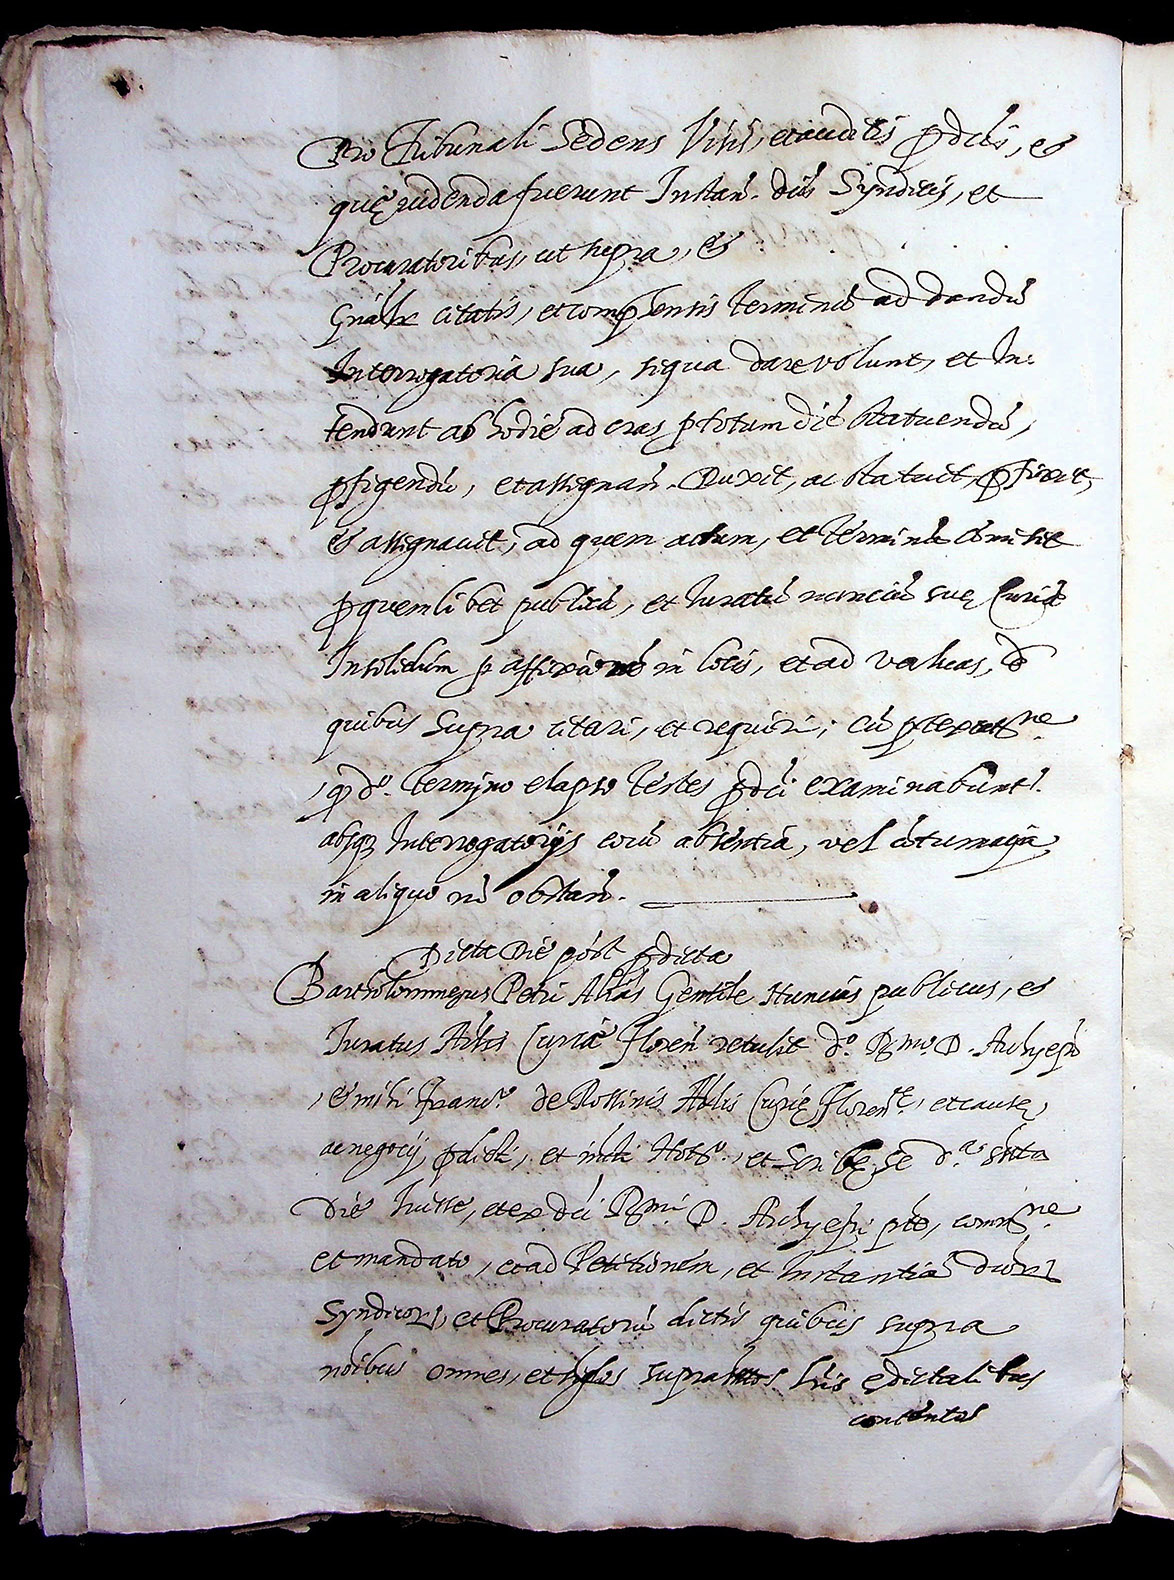 Pro Tribunali Sedens Visis, et auditis pdcis, et
quę uidenda fuerunt Instañ. dcis Syndicis, et
Procuratoribus, ut supra, et
gñalr citatis, et comp̃entis terminũ ad dandũ
Interrogatoria sua, siqua dare volunt, et In-
tendunt ab hodie ad cras p totum diẽ statuendũ,
pfigendũ, et assignañ. Duxit, ac statuit, pfixit,
et assignauit, ad quem actum, et terminũ cõmisit
p quemlibet publicũ, et Iuratũ nunciũ suę Curię
Insolidum p affixionẽ in locis, et ad valuas, de
quibus supra citari, et requiri; cũ ptextatne
, q do. Termino elapso Testes pdci examinabunt.
absq Interrogatorijs eorũ absentia, vel cõtumacia
in aliquo nõ obstañ.
Dicta Die post pdicta
Bartholommeus Petri Alias Gentile Nuncius publicus, et
Iuratus Aplis Curiae Floreñ retulit do. Rmo. D. Archiepo
, et mihi Franco. de Rossinis Aplis Curię Florenne. et causę,
ac negocij pdicti, et infti Noto., et Scribę, Se da. supta
Die Iuisse, et ex dci Rmi. D. Archiepi pto, comisne.
et mandato, et ad Petitionem, et Instantiã dictor
Syndicor, et Procuratorũ dictis quibus supra
noibus omnes, et sgłos suprasctos lris edictalibus
contentos